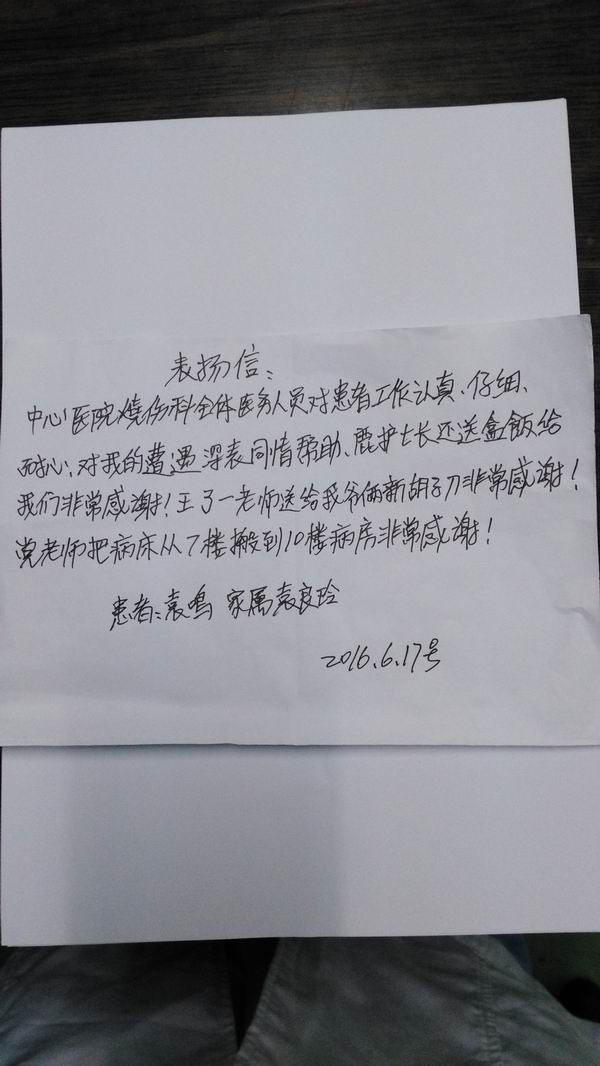 表扬信:
中心医院烧伤科全体医务人员对患者工作认真、仔细、
耐心,对我的遭遇深表同情帮助、鹿护士长还送盒飯给
我们非常感谢!王了一老师送给我爷俩新胡子刀非常感谢!
党老师把病床从7楼搬到10楼病房非常感谢!
患者:袁鸣 家属袁良玲
2016.6.17号